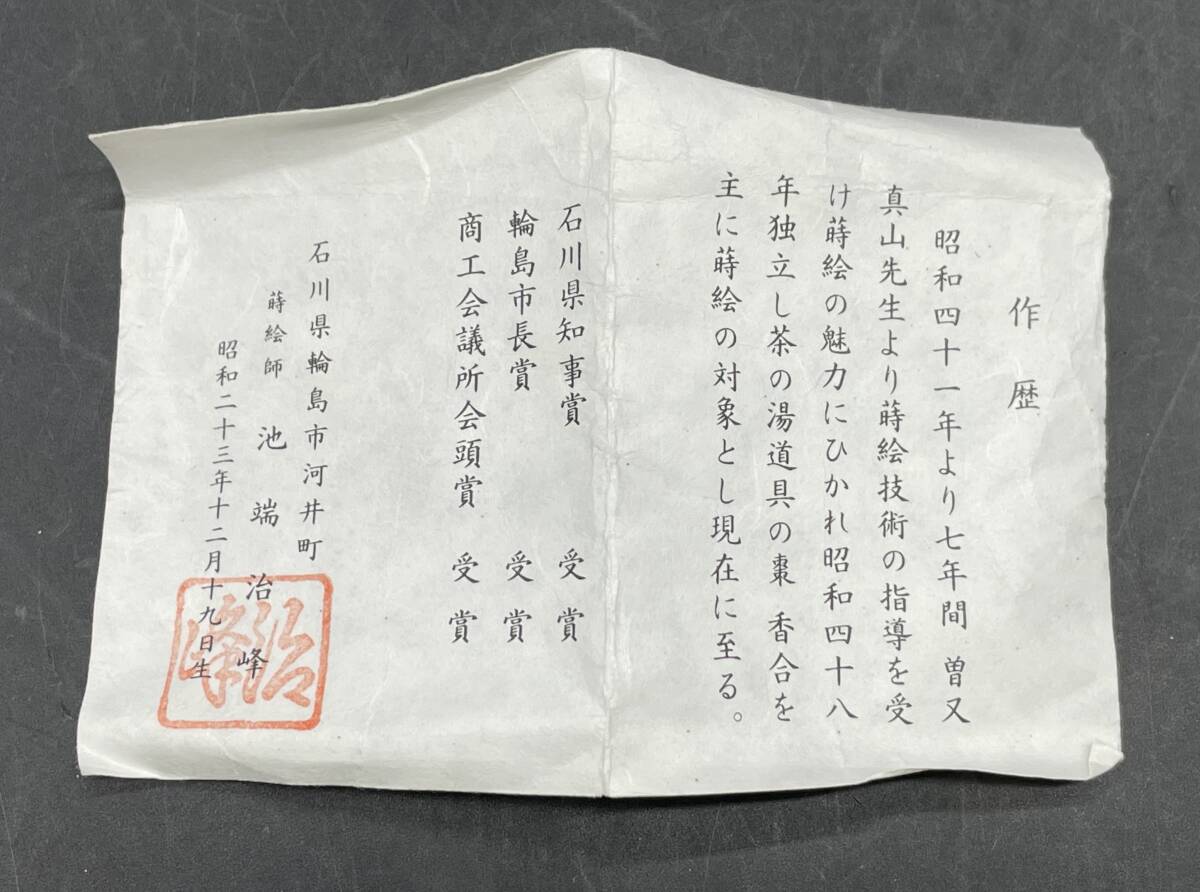 作歴
昭和四十一年より七年間 曽又
真山先生より蒔絵技術の指導を受
け蒔絵の魅力にひかれ昭和四十八
年独立し茶の湯道具の棗 香合を
主に蒔絵の対象とし現在に至る。
石川県知事賞 受賞
輪島市長賞 受賞
商工会議所会頭賞 受賞
石川県輪島市河井町
蒔絵師 池端 治峰
昭和二十三年十二月十九日生
治峰